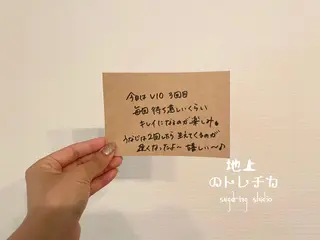 今日は VIO 3回目
毎回 待ち遠しいくらい
キレイになるのが楽しみ。
うなじは2回したら 生えてくるのが
遅くなったよ〜 嬉しい〜♪
地上
のトレチカ
sugaring studio